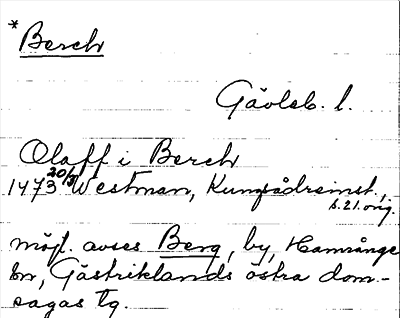 * Berch
Gävleb. l.
Olaff i Berch
1473 20/3 Westman, Kungsådreinst.,
s. 21. orig.
möjl. avses Berg, by, Hamrånge
sn, Gästriklands östra dom-
sagas tg.